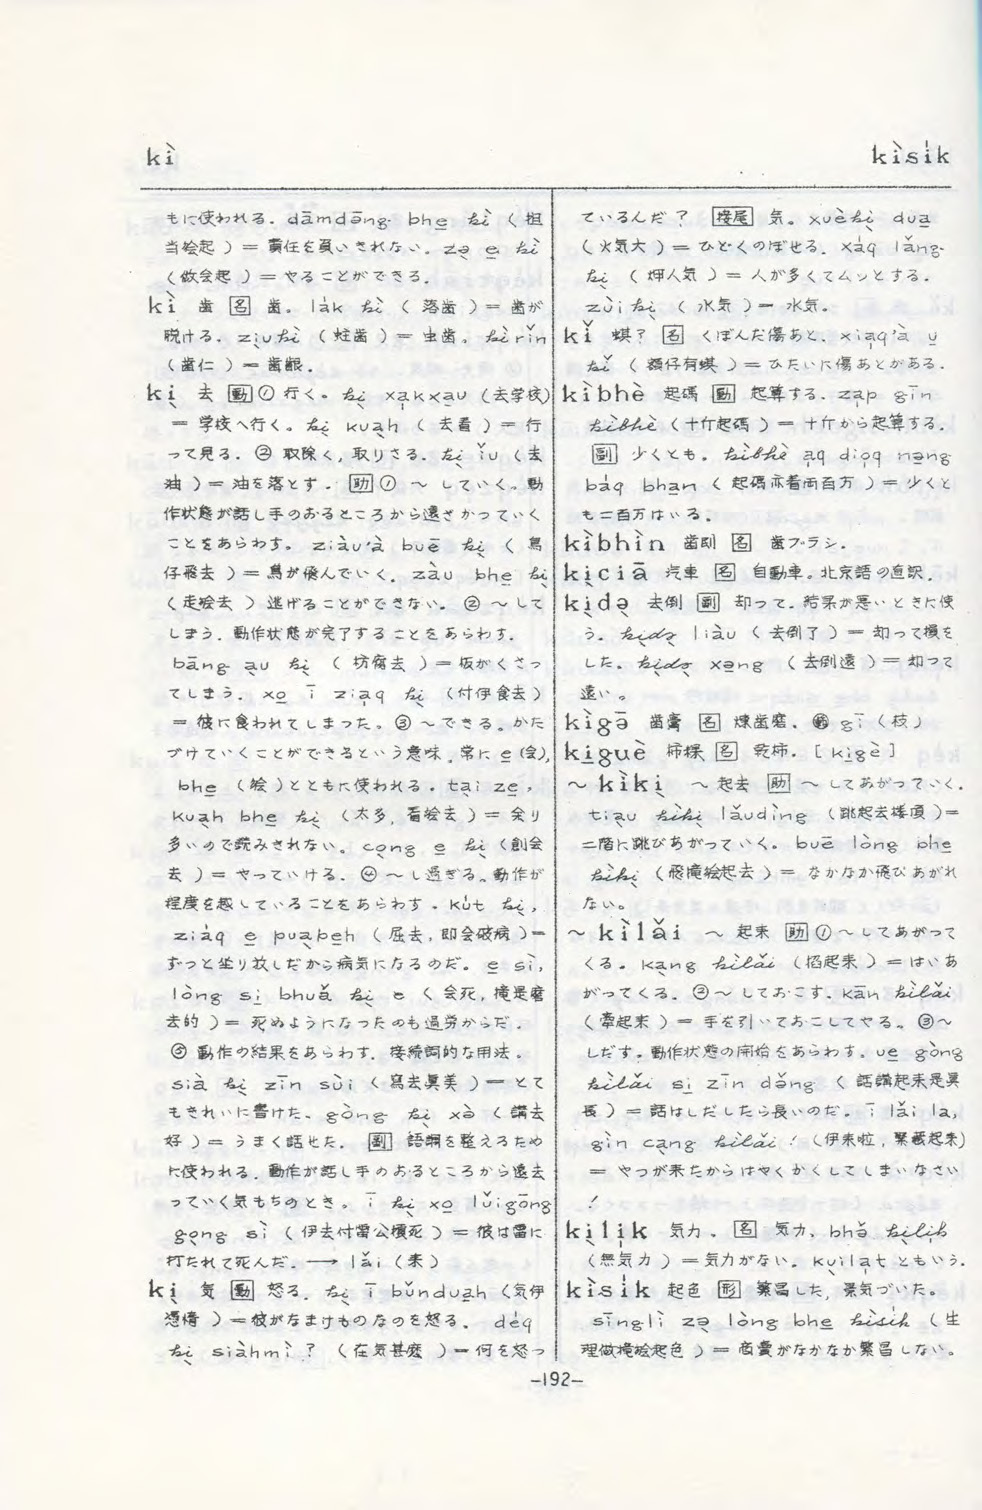 kì
kìsi̍k
もに使われる。dāmdāng bhe̲ kì (担
当絵起)=責任を負いきれない。zə̱ e̲ kì
(做会起)=やることができる。
kì 歯 [名] 歯。lák kì (落歯)=歯が
脱ける。ziùkì (蛀歯)=虫歯。kìrǐn
(歯仁)=歯齦。
ki̱ 去 [動]①行く。ki̱ xa̱kxa̱u (去学校)
=学校へ行く。ki̱ kua̱h (去看)=行
って見る。②取除く,取りさる。ki̱ ǐu (去
油)=油を落とす。[助]①〜していく。動
作状態が話し手のおるところから遠さかっていく
ことをあらわす。ziàu'à buē ki̱ (鳥
仔飛去)=鳥が飛んでいく。zàu bhe̲ ki̱
(走絵去)逃げることができない。②〜して
しまう。動作状態が完了することをあらわす。
bāng a̱u ki̱ (枋腐去)=板がくさっ
てしまう。xo̲ ī zia̍q ki̱ (付伊食去)
=彼に食われてしまった。③〜できる。かた
づけていくことができるという意味。常に e̲ (会),
bhe̲ (絵)とともに使われる。ta̱i ze̲,
kua̱h bhe̲ ki̱ (太多,看絵去)=余り
多いので読みきれない。co̱ng e̲ ki̱ (創会
去)=やっていける。④〜し過ぎる。動作が
程度を越していることをあらわす。ku̍t ki̱,
ziáq e̲ pua̱be̲h (屈去,即会破病)=
ずっと坐り放しだから病気になるのだ。e̲ sì,
lòng si̲ bhuǎ ki̱ e (会死,攏是磨
去的)=死ぬようになったのも過労からだ。
⑤動作の結果をあらわす。接続詞的な用法。
sià ki̱ zīn sùi (寫去眞美)=とて
もきれいに書けた。gòng ki̱ xə̀ (講去
好)=うまく話せた。[副] 語調を整えるため
に使われる。動作が話し手のおるところから遠去
っていく気もちのとき。ī ki̱ xo̲ lǔigōng
go̱ng sì (伊去付雷公摃死)=彼は雷に
打たれて死んだ。→ lǎi (来)
ki̱ 気 [動] 怒る。ki̱ ī bǔndua̲h (気伊
憑惰)=彼がなまけものなのを怒る。déq
ki̱ siàhmì? (在気甚麼)=何を怒っ
ているんだ? [接尾] 気。xuèki̱ dua̲
(火気大)=ひどくのぼせる。xa̍q lǎng-
ki̱ (㷉人気)=人が多くてムッとする。
zùiki̱ (水気)=水気。
kǐ 蜞? [名] くぼんだ傷あと。xia̍q'à u̲
kǐ (額仔有蜞)=ひたいに傷あとがある。
kìbhè 起碼 [動] 起算する。za̍p gīn
kìbhè (十斤起碼)=十斤から起算する。
[副] 少くとも。kìbhè a̍q dio̍q nə̲ng
báq bha̲n (起碼亦着両百万)=少くと
も二百万はいる。
kìbhìn 歯刷 [名] 歯ブラシ。
ki̱ciā 汽車 [名] 自動車。北京語の直訳。
ki̱də̱ 去倒 [副] 却って。結果が悪いときに使
う。ki̱də̱ liàu (去倒了)=却って損を
した。ki̱də̱ xə̲ng (去倒遠)=却って
遠い。
kìgə̄ 歯膏 [名] 煉歯磨。 gī (枝)
ki̲guè 柿粿 [名] 乾柿。[ki̲gè]
〜kìki̱ 〜起去 [助]〜してあがっていく。
tia̱u kìki̱ lǎudìng (跳起去楼頂)=
二階に跳びあがっていく。buē lòng bhe̲
kìki̱ (飛攏絵起去)=なかなか飛びあがれ
ない。
〜kìlǎi 〜起来 [助]①〜してあがって
くる。ka̱ng kìlǎi (掐起来)=はいあ
がってくる。②〜しておこす。kān kìlǎi
(牽起来)=手を引いておこしてやる。③〜
しだす。動作状態の開始をあらわす。ue̲ gòng
kìlǎi si̲ zīn də̌ng (話講起来是眞
長)=話はしだしたら長いのだ。ī lǎi la,
gìn ca̱ng kìlǎi! (伊来啦,緊蔵起来)
=やつが来たからはやくかくしてしまいなさい
!
ki̱li̍k 気力。[名] 気力。bhə̌ ki̱li̍k
(無気力)=気力がない。ku̱ila̍t ともいう。
kìsi̍k 起色 [形] 繁昌した,景気づいた。
sīnglì zə̱ lòng bhe̲ kìsi̍k (生
理做攏絵起色)=商賣がなかなか繁昌しない。
—192—